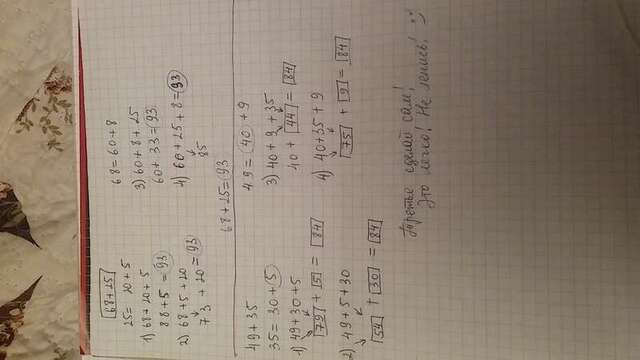 68+25
25= 20+5
1) 68+20+5
88+5=93
2) 68+5+20
73 +20=93
68=60+8
3) 60+8+25
60+33=93
4) 60+25+8=93
85
68+25=93
49+35
35=30+5
1) 49+30+5
79+5=84
2) 49+5+30
54+30=84
49=40+9
3) 40+9+35
40+44=84
4) 40+35+9
75+9=84
Третье сделай сам!
Это легко! Не ленись!